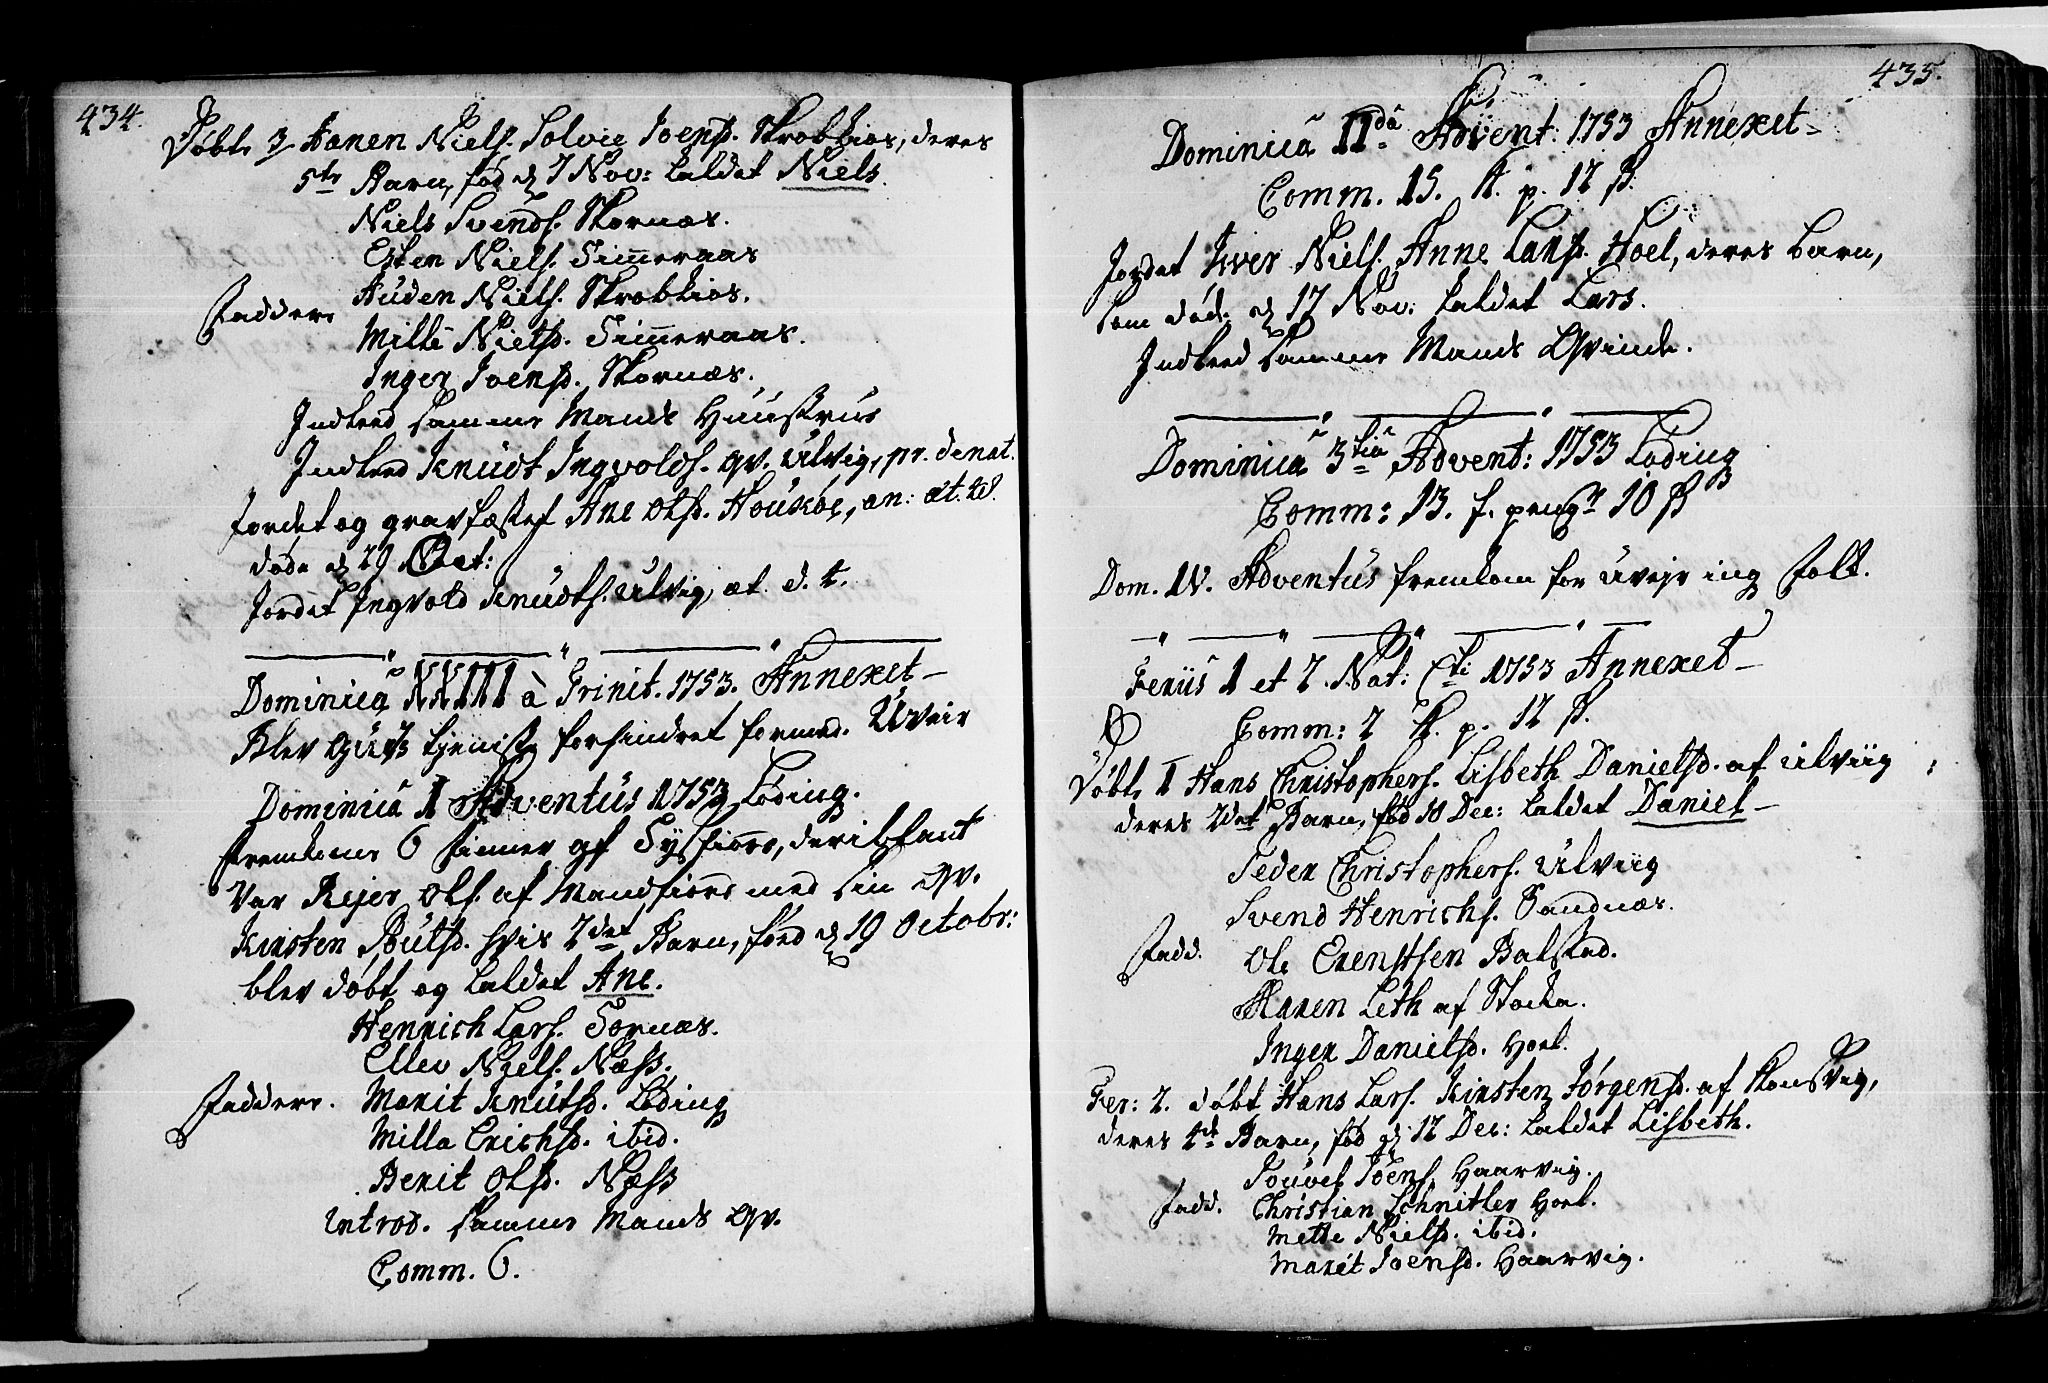 434.
Døbt 3 Hanen Niels. Solvie Joensd. Skrobkios, deres
5te Barn, fød d 7 Nov: kaldet Niels.
Niels Svends. Skornæs.
Esten Niels. Timmeraas
Auden Niels. Skrobkios.
Faddere
Mille Nielsd. Timmeraas.
Inger Joensd. Skornæs.
Indleed samme Mands Huustrue
Indleed Knudt Ingvolds. qv. Ulvig, pr. denat.
Jordet og gravfæstet Ane Olsd. Houkøe, an: æt.
døde d 29 Oct:
Jordet Ingvold Knudts. Ulvig, æt. d. t.
Dominica XXIII à Trinit. 1753. Annexet
Blev Guds tjeniste forhindret formed. Uveir
Dominica I Adventus 1753 Løding.
Fremkomne 6 Finner af Tysfiord, deriblant
Var Rejer Ols. af Mandfiord med sin qv.
Kirsten Poulsd. hvis 2det Barn, fød d 19 Octobr:
blev døbt og kaldet Ane.
Henrich Lars. Tornæs.
Ellev Niels. Næss.
Faddere. Marit Knutsd. Løding
Milla Erichsd. ibid.
Berit Olsd. Næss
Introd. samme Mands qv.
Comm. 6.
435.
Dominica IIda Advent: 1753 Annexet
Comm. 15. K. p. 12 ß.
Jordet Iver Niels. Anne Larsd. Hoel, deres Barn,
som døde d 17 Nov: kaldet Lars.
Indleed samme Mands Qvinde.
Dominica 3tia Advent: 1753 Løding
Comm: 13. f. penge 10 ß
Dom. IV. Adventus fremkom for uvejr ing Folk.
Feriis 1 et 2. Nat: Cti 1753 Annexet
Comm: 2 K. p. 12 ß.
Døbt 1 Hans Christophers. Lisbeth Danielsd. af Ulviig
deres 2det Barn, fød 10 Dec: kaldet Daniel
Peder Christophers. Ulviig
Svend Henrichs. Sandnæs.
Fadd. Ole Erenstsen Balstad.
Karen Leth af Stocka.
Inger Danielsd. Hoel.
Fer: 2. døbt Hans Lars. Kirsten Jørgensd. af Konsvig,
deres 4de Barn, fød d 12 Dec: kaldet Lisbeth.
Jouvel Joens. Haarvig.
Fadd. Christian Schnitler Hoel.
Mette Nielsd. ibid.
Marit Joensd. Haarvig.